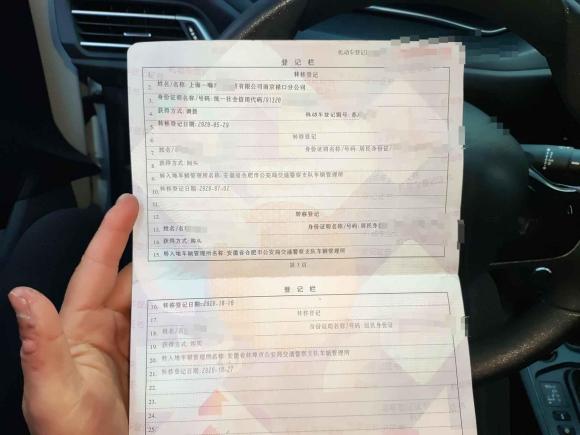 机动车登记
登记栏
1. 转移登记
2. 姓名/名称: 上海一嗨 有限公司南京禄口分公司
3. 身份证明名称/号码: 统一社会信用代码/91320
4. 获得方式: 调拨 机动车登记编号: 苏
5. 转移登记日期: 2020-05-29
6. 转移登记
7. 姓名/ 身份证明名称/号码: 居民身份证
8. 获得方式: 购买
9. 转入地车辆管理所名称: 安徽省合肥市公安局交通警察支队车辆管理所
10. 转移登记日期: 2020-07-02
11.
12. 转移登记
13. 姓名 身份证明名称/号码: 居民身
14. 获得方式: 购买
15. 转入地车辆管理所名称: 安徽省合肥市公安局交通警察支队车辆管理所
第3页
登记栏
16. 转移登记日期: 2020-10-16
17. 转移登记
18. 姓名 身份证明名称/号码: 居民身份证
19. 获得方式: 购买
20. 转入地车辆管理所名称: 安徽省蚌埠市公安局交通警察支队车辆管理所
21. 转移登记日期: 2020-10-27
22.
23.
24.
25.